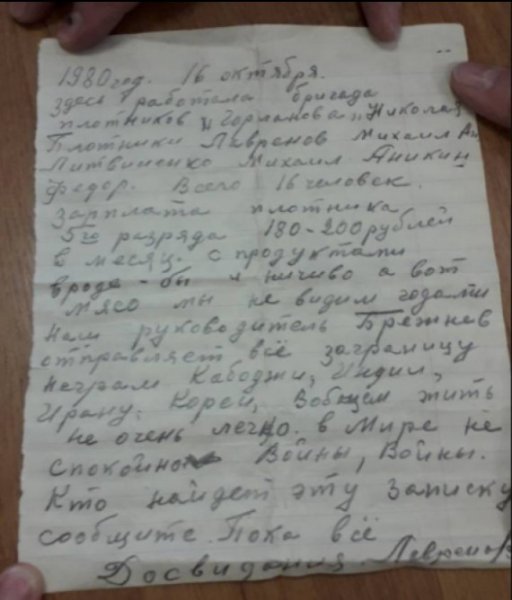 1980 год. 16 октября.
здесь работала бригада
плотников "Горланова" Николая
Плотники Лавренов Михаил
Литвиненко Михаил Аникин
Федор. Всего 16 человек.
Зарплата плотника
5го разряда 180-200 рублей
в месяц. с продуктами
вроде-бы и ничиво а вот
мясо мы не видим годами
наш руководитель Брежнев
отправляет всё заграницу
неграм Кабоджи, Индии,
Ирану. Корей, Вобщем жить
не очень легко. в Мире не
спокойно Войны, Войны.
Кто найдет эту записку
сообщите. Пока всё
Досвидания. Лавренов